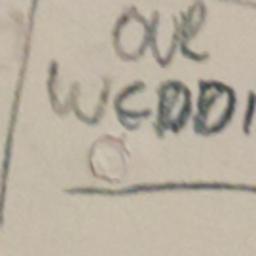 OUR
WEDDI